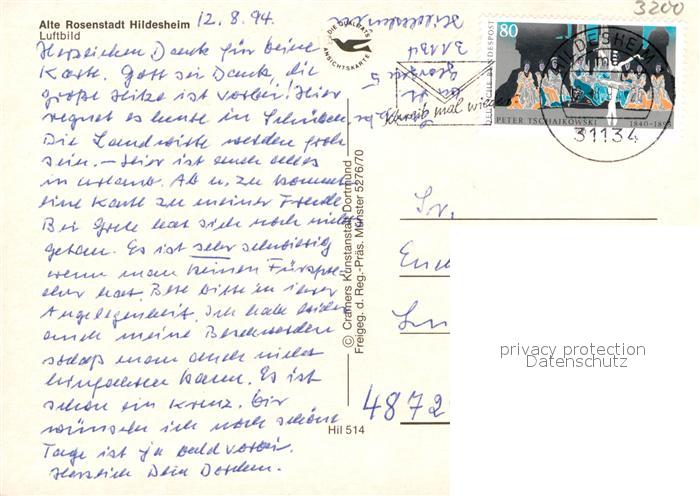 Alte Rosenstadt Hildesheim
Luftbild
12.8.94.
Herzlichen Dank für deine
Karte. Gott sei Dank, die
große Hitze ist vorbei! Hier
regnet es heute in Schüben.
Die Landwirte werden froh
sein. – Hier ist auch alles
in Urlaub. Ab u. zu kommt
eine Karte zu meiner Freude.
Bei Grete hat sich noch nichts
getan. Es ist sehr schwierig
wenn man keinen Fürspre-
cher hat. Bete bitte in ihrer
Angelegenheit. Ich habe leider
auch meine Beschwerden
sodaß man auch nicht
hingehen kann. Es ist
schon ein Kreuz. Dir
wünsche ich noch schöne
Tage ist ja bald vorbei.
Herzlich Dein
DIE QUALITÄTS
ANSICHTSKARTE
Hildesheim
31134
5
Schreib mal wieder
80
DEUTSCHE BUNDESPOST
PETER TSCHAIKOWSKI 1840-1893
HILDESHEIM
31134
3200
© Cramers Kunstanstalt Dortmund
Freigeg. d. Reg.-Präs. Münster 5276/70
Hil 514
Sr.
4872
privacy protection
Datenschutz